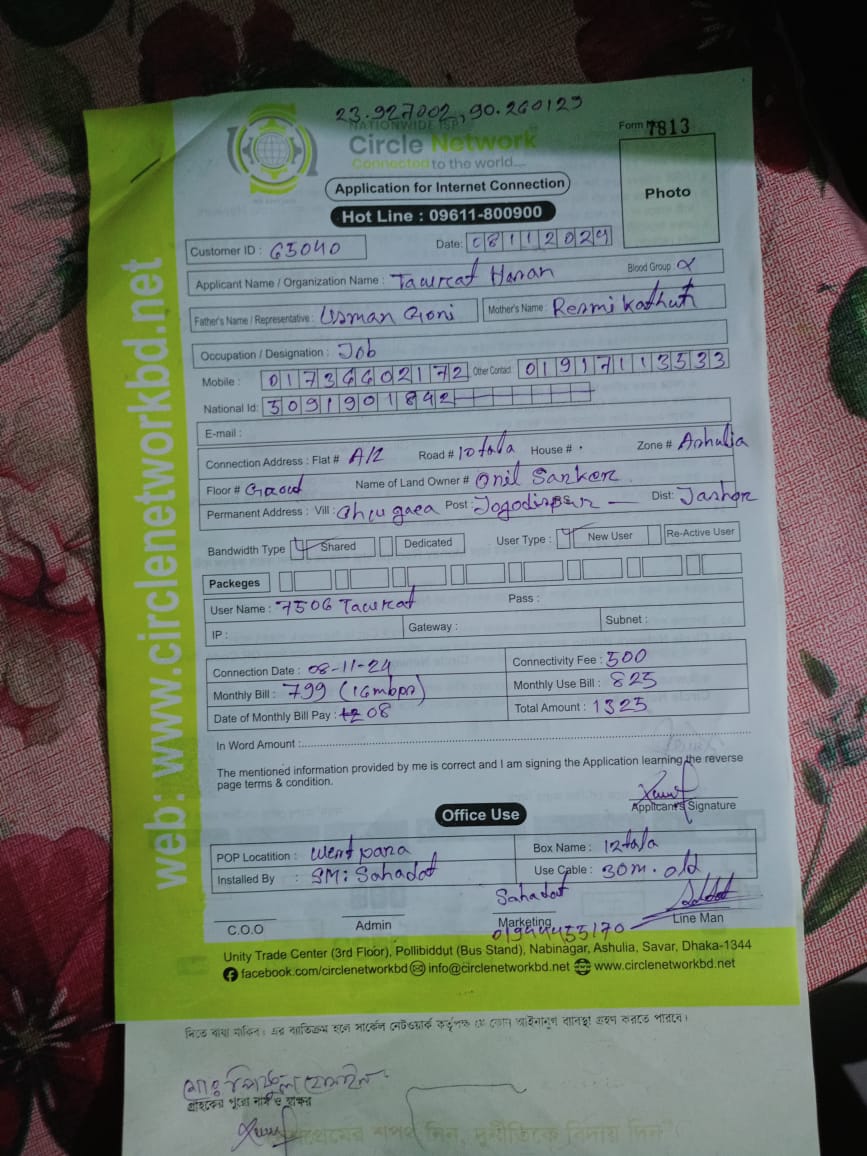 23.927002, 90.260129
NATIONWIDE ISP
Form No 7813
Circle Network
Connected to the world....
Application for Internet Connection
Photo
Hot Line : 09611-800900
Customer ID : 65040 Date: 08112024
Applicant Name / Organization Name : Tawrat Hasan Blood Group
Father's Name / Representative : Usman Goni Mother's Name : Resmi
Occupation / Designation : Job
Mobile : 01736602172 Other Contact 01917113533
National Id: 5091901842
E-mail :
Connection Address : Flat # A/2 Road # 10 tala House # Zone # Ashulia
Floor # Name of Land Owner # Onil Sarker
Permanent Address : Vill : Post : Dist: Jashor
Bandwidth Type Shared Dedicated User Type : New User Re-Active User
Packeges
User Name : 7506 Tawrat Pass :
IP : Gateway : Subnet :
Connection Date : 08-11-24 Connectivity Fee : 500
Monthly Bill : 799 (16mbps) Monthly Use Bill : 825
Date of Monthly Bill Pay : 08 Total Amount : 1325
In Word Amount :
The mentioned information provided by me is correct and I am signing the Application learning the reverse
page terms & condition.
Applicant's Signature
Office Use
POP Locatition : West para Box Name : 12 tala
Installed By : SM: Sahadat Use Cable : 30m. old
Sahadat
C.O.O Admin Marketing Line Man
Unity Trade Center (3rd Floor), Pollibiddut (Bus Stand), Nabinagar, Ashulia, Savar, Dhaka-1344
facebook.com/circlenetworkbd info@circlenetworkbd.net www.circlenetworkbd.net
web: www.circlenetworkbd.net
দিতে বাধ্য থাকিব। এর ব্যতিক্রম হলে সার্কেল নেটওয়ার্ক কর্তৃপক্ষ যে কোন আইনানুগ ব্যবস্থা গ্রহণ করতে পারবে।
গ্রাহকের পুরো নাম ও স্বাক্ষর
শপথ নিন, দুর্নীতিকে বিদায় দিন"